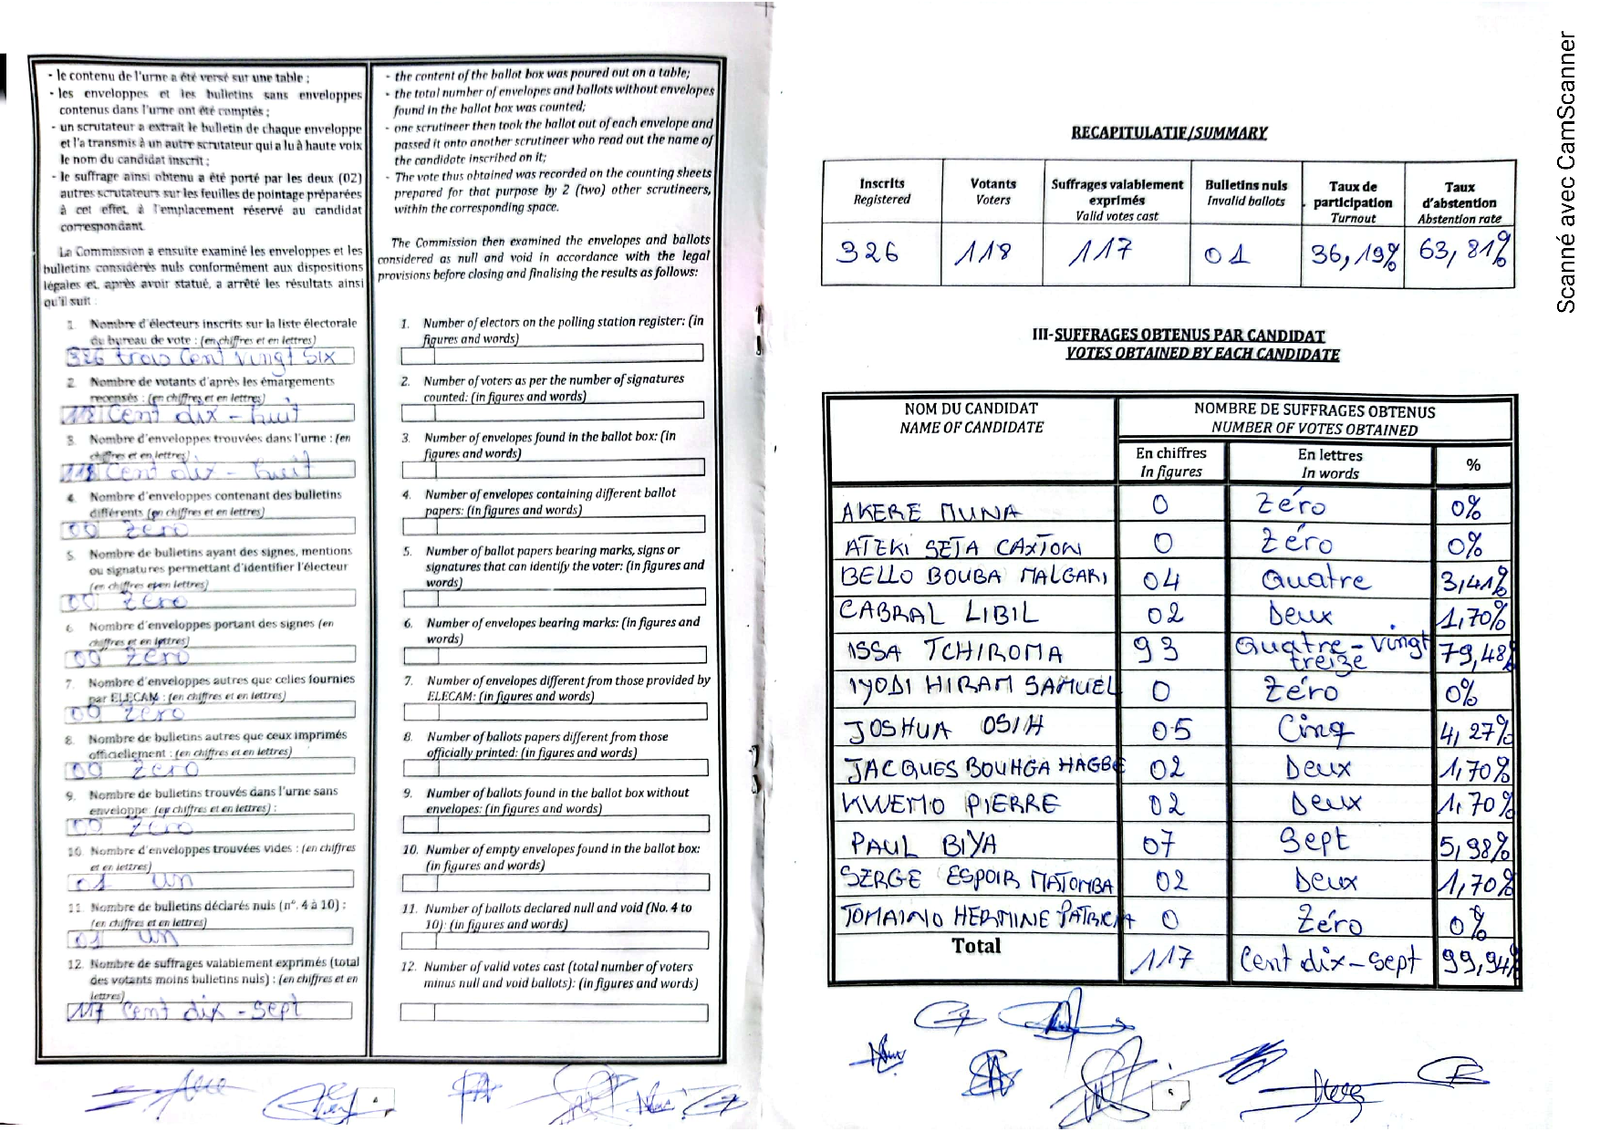 - le contenu de l'urne a été versé sur une table ;
- les enveloppes et les bulletins sans enveloppes
contenus dans l'urne ont été comptés ;
- un scrutateur a extrait le bulletin de chaque enveloppe
et l'a transmis à un autre scrutateur qui a lu à haute voix
le nom du candidat inscrit ;
- le suffrage ainsi obtenu a été porté par les deux (02)
autres scrutateurs sur les feuilles de pointage préparées
à cet effet, à l'emplacement réservé au candidat
correspondant.
La Commission a ensuite examiné les enveloppes et les
bulletins considérés nuls conformément aux dispositions
légales et, après avoir statué, a arrêté les résultats ainsi
qu'il suit :
1. Nombre d'électeurs inscrits sur la liste électorale
du bureau de vote : (en chiffres et en lettres)
326 trois Cent Vingt Six
2. Nombre de votants d'après les émargements
recensés : (en chiffres et en lettres)
118 Cent dix - huit
3. Nombre d'enveloppes trouvées dans l'urne : (en
chiffres et en lettres)
118 Cent dix - huit
4. Nombre d'enveloppes contenant des bulletins
différents (en chiffres et en lettres)
00 Zéro
5. Nombre de bulletins ayant des signes, mentions
ou signatures permettant d'identifier l'électeur
(en chiffres et en lettres)
00 Zéro
6. Nombre d'enveloppes portant des signes (en
chiffres et en lettres)
00 Zéro
7. Nombre d'enveloppes autres que celles fournies
par ELECAM : (en chiffres et en lettres)
00 Zéro
8. Nombre de bulletins autres que ceux imprimés
officiellement : (en chiffres et en lettres)
00 Zéro
9. Nombre de bulletins trouvés dans l'urne sans
enveloppe (en chiffres et en lettres) :
00 Zéro
10. Nombre d'enveloppes trouvées vides : (en chiffres
et en lettres)
01 un
11. Nombre de bulletins déclarés nuls (n°. 4 à 10) :
(en chiffres et en lettres)
01 un
12. Nombre de suffrages valablement exprimés (total
des votants moins bulletins nuls) : (en chiffres et en
lettres)
117 Cent dix - Sept
- the content of the ballot box was poured out on a table;
- the total number of envelopes and ballots without envelopes
found in the ballot box was counted;
- one scrutineer then took the ballot out of each envelope and
passed it onto another scrutineer who read out the name of
the candidate inscribed on it;
- The vote thus obtained was recorded on the counting sheets
prepared for that purpose by 2 (two) other scrutineers,
within the corresponding space.
The Commission then examined the envelopes and ballots
considered as null and void in accordance with the legal
provisions before closing and finalising the results as follows:
1. Number of electors on the polling station register: (in
figures and words)
2. Number of voters as per the number of signatures
counted: (in figures and words)
3. Number of envelopes found in the ballot box: (in
figures and words)
4. Number of envelopes containing different ballot
papers: (in figures and words)
5. Number of ballot papers bearing marks, signs or
signatures that can identify the voter: (in figures and
words)
6. Number of envelopes bearing marks: (in figures and
words)
7. Number of envelopes different from those provided by
ELECAM: (in figures and words)
8. Number of ballots papers different from those
officially printed: (in figures and words)
9. Number of ballots found in the ballot box without
envelopes: (in figures and words)
10. Number of empty envelopes found in the ballot box:
(in figures and words)
11. Number of ballots declared null and void (No. 4 to
10): (in figures and words)
12. Number of valid votes cast (total number of voters
minus null and void ballots): (in figures and words)
RECAPITULATIF/SUMMARY
Inscrits Votants Suffrages valablement exprimés Bulletins nuls Taux de participation Taux d'abstention
Registered Voters Valid votes cast Invalid ballots Turnout Abstention rate
326 118 117 01 36,19% 63,81%
III-SUFFRAGES OBTENUS PAR CANDIDAT
VOTES OBTAINED BY EACH CANDIDATE
NOM DU CANDIDAT NOMBRE DE SUFFRAGES OBTENUS
NAME OF CANDIDATE NUMBER OF VOTES OBTAINED
En chiffres En lettres %
In figures In words
AKERE MUNA 0 Zéro 0%
ATEKI SETA CAXTON 0 Zéro 0%
BELLO BOUBA MALGARI 04 Quatre 3,41%
CABRAL LIBIL 02 Deux 1,70%
ISSA TCHIROMA 93 Quatre-Vingt treize 79,48%
IYODI HIRAM SAMUEL 0 Zéro 0%
JOSHUA OSIH 05 Cinq 4,27%
JACQUES BOUHGA HAGBE 02 Deux 1,70%
KWEMO PIERRE 02 Deux 1,70%
PAUL BIYA 07 Sept 5,98%
SERGE ESPOIR MATOMBA 02 Deux 1,70%
TOMAINO HERMINE PATRICIA 0 Zéro 0%
Total 117 Cent dix-Sept 99,94%
Scanné avec CamScanner